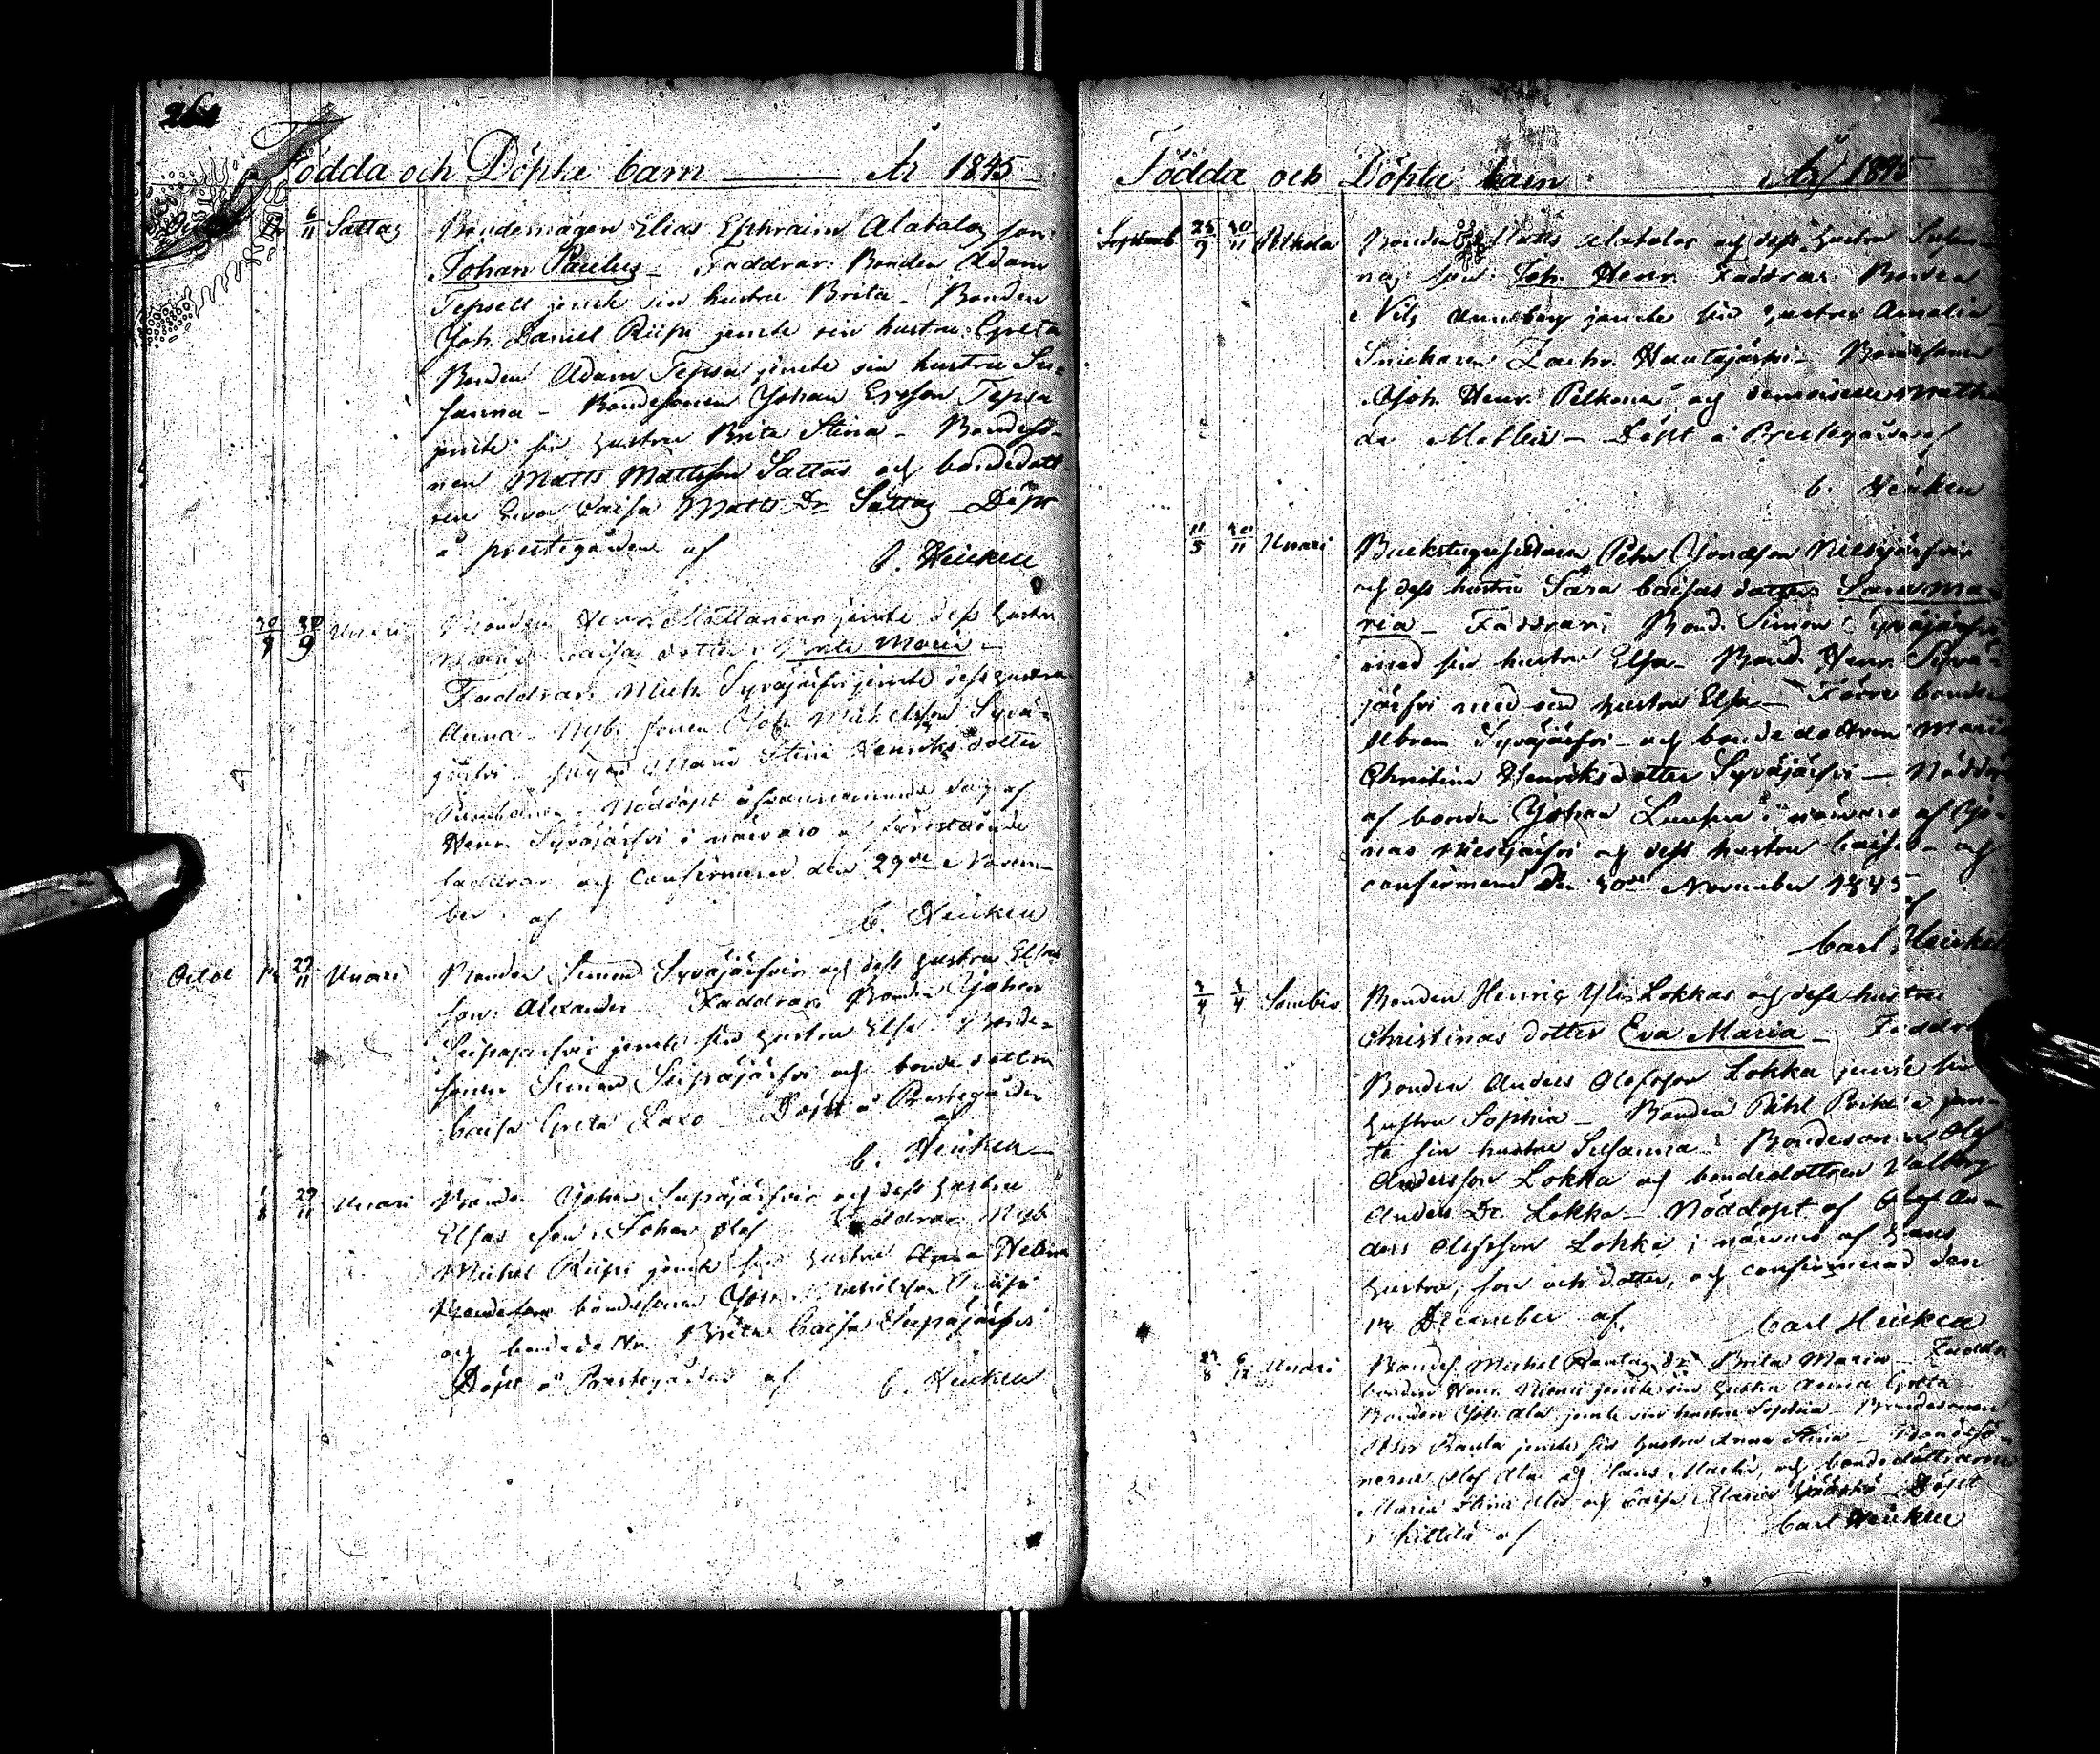 264
Födda och Döpta barn År 1845
6/11 Sattas Bondemågen Elias Ephraim Alatalos son:
Johan Paulus - Faddrar: Bonden Adam
Tepsell jemte sin hustru Brita - Bonden
Joh. Daniel Riipi jemte sin hustru Greta
Bonden Adam Tepsa jemte sin hustru Su-
sanna - Bondesonen Johan Ersson Tepsa
jemte sin hustru Brita Stina - Bondeso-
nen Matts Mattsson Sattas och bondedott-
ren Eva Caisa Matts Dr Sattas - Döpt
å prestegården af C. Heickell
30/9 Unari Bonden Henr. jemte dess hustru
Caisas dotter Brita Maria -
Faddrar: Mich. Syväjärfvi jemte dess hustru
Anna - Nyb. sonen Joh. Michelsson Syvä-
järfvi - pigan Maria Stina Henriksdotter
Nöddöpt ofvannämnde dag af
Henr. Syväjärfvi i närvaro af förestående
faddrar och confirmerad den 29de Novem-
ber af C. Heickell
Octob 29/11 Unari Bonden Simon Syväjärfvis och dess hustru Elsas
son: Alexander Faddrar: Bonden Johan
Seipäjärfvi jemte sin hustru Elsa - Bonde-
sonen Simon Seipäjärfvi och bondedottren
Caisa Greta - Döpt å Prestegården
af C. Heickell
29/11 Unari Bonden Johan Seipäjärfvis och dess hustru
Elsas son: Johan Olof Faddrar: Nyb.
Michel Riipi jemte sin hustru Helena
bondesonen Joh. Michelsson Riipi
och bondedottr. Brita Caisa Seipäjärfvi
Döpt å Prestegården af C. Heickell
Födda och Döpta barn År 1845
Septemb 25/9 30/11 Pelkola Bonden Matts Alatalos och dess hustru Susan-
nas son: Joh. Henr. Faddrar: Bonden
Nils jemte sin hustru Amalia
Snickaren Zachr. Hautajärfvi - Bondesonen
Joh. Henr. Pelkonen och demoiselle Mathil-
da - Döpt å Prestegården af
C. Heickell
11/5 30/11 Unari Backstugusittaren Pehr Jonasson Niesijärfvis
och dess hustru Sara Caisas dotter: Sara Ma-
ria - Faddrar: Bond. Simon Syväjärfvi
med sin hustru Elsa - Bond. Henr. Syvä-
järfvi med sin hustru Elsa - Förre bonden
Abram Syväjärfvi - och bondedottren Maria
Christina Henriksdotter Syväjärfvi - Nöddöpt
af bonden Johan i närvaro af Jo-
nas Niesijärfvi och dess hustru Caisa - och
confirmerad den 30de November 1845
af
Carl Heickell
Sombio Bonden Henric Yli-Lokkas och dess hustru
Christinas dotter Eva Maria - Faddrar
Bonden Anders Olofsson Lokka jemte sin
hustru Sophia - Bonden Pehl jem-
te sin hustru Susanna - Bondesonen Olof
Andersson Lokka och bondedottren Valborg
Anders Dr. Lokka - Nöddöpt af Olof An-
ders Olofsson Lokka i närvaro af hans
hustru, son och dotter, och confirmerad den
December af. Carl Heickell
6/12 Unari Bondes. Michel Rautas Dr. Brita Maria - Faddr.
bonden Henr. Niemi jemte sin hustru Anna Greta
Bonden Joh. Ala jemte sin hustru Sophia - Bondesonen
Pehr Rauta jemte sin hustru Anna Stina - Bondesö-
nerne Olof Ala och Hans och bondedöttrarne
Maria Stina Ala och Caisa Maria - Döpt
i Kittilä af Carl Heickell